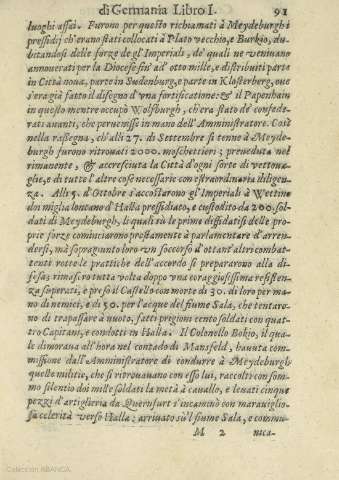 di Germania Libro I. 91
luoghi assai. Furono per questo richiamati à Meydeburgh i
pressidij ch'erano stati collocati à Plato vecchio, e Burkio, du-
bitandosi delle forze de gl'Imperiali, de' quali ne venivano
annouerati per la Diocese fin' ad' otto mille, e distribuiti parte
in Città noua, parte in Sudenburg, e parte in Closterberg, oue
s'era già fatto il disegno d'vna fortificatione: & il Papenhain
in questo mentre occupò Wolfburgh, ch'era stato de' confede-
rati auanti, che peruenisse in mano dell'Amministratore. Così
nella rassegna, ch'alli 27. di Settembre si tenne à Meyde-
burgh furono ritrouati 2000. moschettieri; proueduta nel
rimanente, & accresciuta la Città d'ogni sorte di vettoua-
glie, e di tutte l'altre cose necessarie con estraordinaria diligen-
za. Alli 5. d'Ottobre s'accostarono gl'Imperiali à Wettino
doi miglia lontano d'Halla pressidiato, e custodito da 200. sol-
dati di Meydeburgh, li quali sù le prime diffidatisi delle pro-
prie forze cominciarono prestamente à parlamentare d'arren-
dersi, mà sopragiunto loro vn soccorso d'ottant'altri combat-
tenti rotte le prattiche dell'accordo si prepararono alla di-
fesa; rimasero tutta volta doppo vna coraggiosissima resisten-
za superati, e preso il Castello con morte di 30. di loro per ma-
no de nemici, e di 50. per l'acque del fiume Sala, che tentaro-
no di trapassare à nuoto, fatti pregioni cento soldati con quat-
tro Capitani, e condotti in Halla. Il Colonello Bokio, il qua-
le dimoraua all'hora nel contado di Mansfeld, hauuta com-
missione dall'Amministratore di condurre à Meydeburgh
quelle militie, che si ritrouauano con esso lui, raccolti con som-
mo silentio doi mille soldati la metà à cauallo, e leuati cinque
pezzi d'artiglieria da Quernfurt s'incaminò con marauiglio-
sa celerità verso Halla: arriuato sù'l fiume Sala, e comin-
M 2 nica-
Colección ABANCA